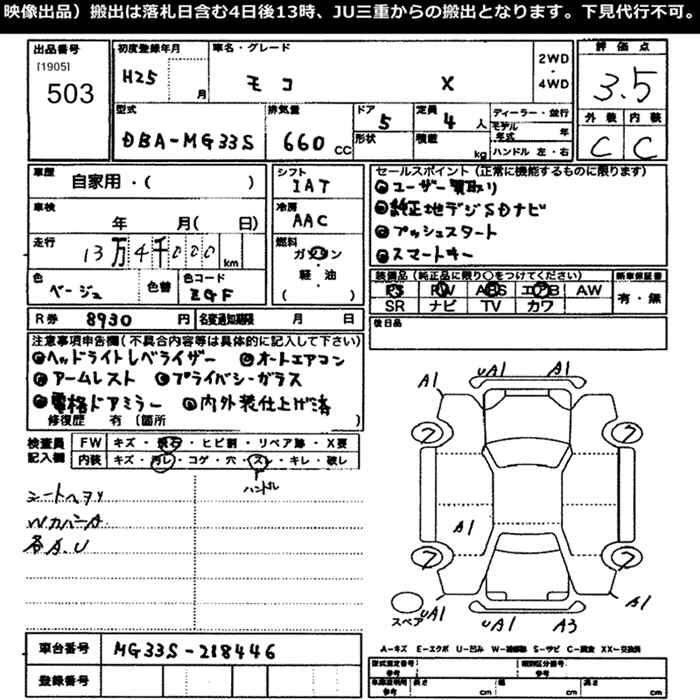 映像出品）搬出は落札日含む4日後13時、JU三重からの搬出となります。下見代行不可。
出品番号 初度登録年月 車名・グレード 評価点
[1905] H25 月 モコ X 2WD・4WD 3.5
503
型式 排気量 ドア 定員 ディーラー・並行 外装 内装
DBA-MG33S 660 CC 5 4 人 モデル年式 年 C C
形状 積載 kg ハンドル 左・右
車歴 自家用・( ) シフト セールスポイント（正常に機能するものに限ります）
IAT ユーザー買取り
車検 年 月( 日) 冷房 純正地デジSDナビ
AAC プッシュスタート
走行 13万4千000km 燃料 ガソリン・軽・油 ( ) スマートキー
色 ベージュ 色替 色コード EGF
装備品（純正品に限り○をつけてください） 新車保証書
PS PW ABS エアB AW 有・無
SR ナビ TV カワ
R券 8930 円 名変通知期限 月 日 後日品
注意事項申告欄（不具合内容等は具体的に記入して下さい）
ヘッドライトレベライザー オートエアコン
アームレスト プライバシーガラス
電格ドアミラー 内外装仕上げ済
修復歴 有（箇所
検査員記入欄 FW キズ・飛石・ヒビ割・リペア跡・X要
内装 キズ・汚レ・コゲ・穴・スレ・キレ・破レ
ハンドル
シートヘタリ
Wカバー
各A.U
A1 uA1 A1
フ フ
A1
フ フ
スペア uA1 uA1 A3 A1
A-キズ E-エクボ U-凹み W-補修跡 S-サビ C-腐食 XX-交換済
車台番号 MG33S-218446
登録番号
型式指定番号 参考 類別区分番号 参考
車庫証明用 参考 長さ cm 幅 cm 高さ cm